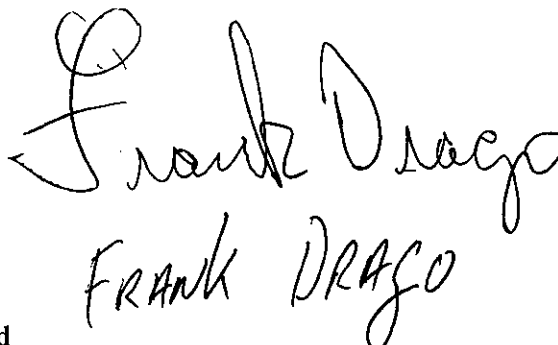 Frank Drago
FRANK DRAGO
d